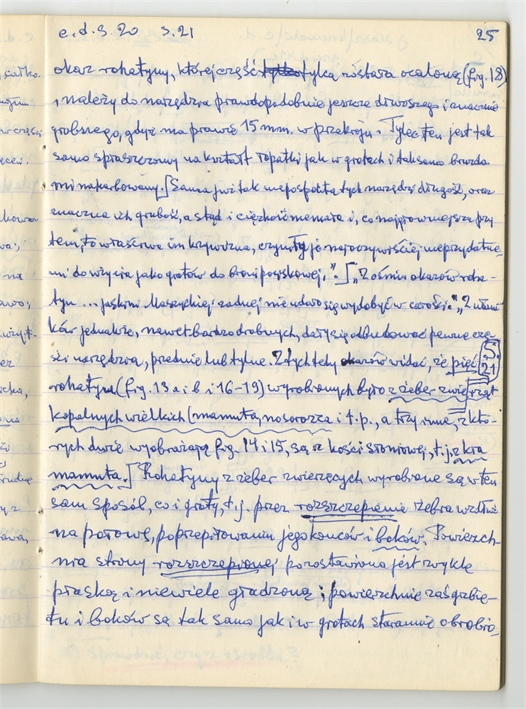 c.d.s. 20 s. 21 25
okaz rohatyny, której część tylko tylna została ocaloną (fig. 18)
, należy do narzędzia prawdopodobnie jeszcze dłuższego i znacznie
grubszego, gdyż ma prawie 15 mm. w przekroju. Tylec ten jest tak
samo spłaszczony na kształt łopatki jak w grotach i tak samo bruzda
mi nakarbowany. [Sama już tak niepospolita tych narzędzi długość, oraz
znaczna ich grubość, a stąd i ciężkość niemała i, co najprawniejsza przy
tem, to właściwa im krzywizna, czyniły je najoczywiściej nieprzydatne-
mi do użycia jako grotów do broni pociskowej."] ["Z ośmiu okazów roha-
tyn ... jaskini Maszyckiej żadnej nie udało się wydobyć w całości." "Z ułam
ków jednakże, nawet bardzo drobnych, dały się odbudować pewne czę-
ści narzędzia, przednie lub tylne. Z tych tedy okazów widać, że pięć
S. 21
rohatyn (fig. 13 a i b i 16-19) wyrobionych było z żeber zwierząt
kopalnych wielkich (mamuta, nosorożca i t.p., a trzy inne, z któ-
rych dwie wyobrażają fig. 14 i 15, są z kości słoniowej, t.j. z kła
mamuta.] Rohatyny z żeber zwierzęcych wyrobione są w ten
sam sposób, co i groty, t.j. przez rozszczepienie żebra wzdłuż
na połowę, poprzepiłowaniu jego końców i boków. Powierzch
nia strony rozszczepionej pozostawiona jest zwykle
płaską i niewiele gładzoną; powierzchnie zaś grzbie-
tu i boków są tak samo jak i w grotach starannie obrobio,